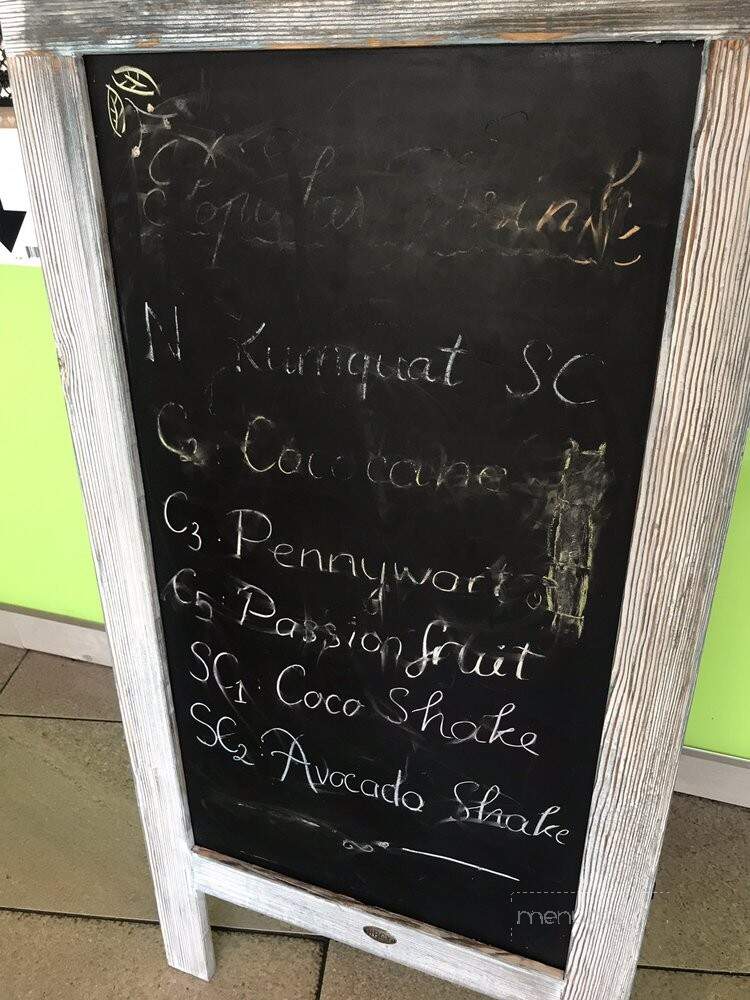 Popular Drink
N Kumquat SC
C2. Cococane
C3. Pennywort
C5. Passion fruit
SC1. Coco Shake
SC2. Avocado Shake
menu